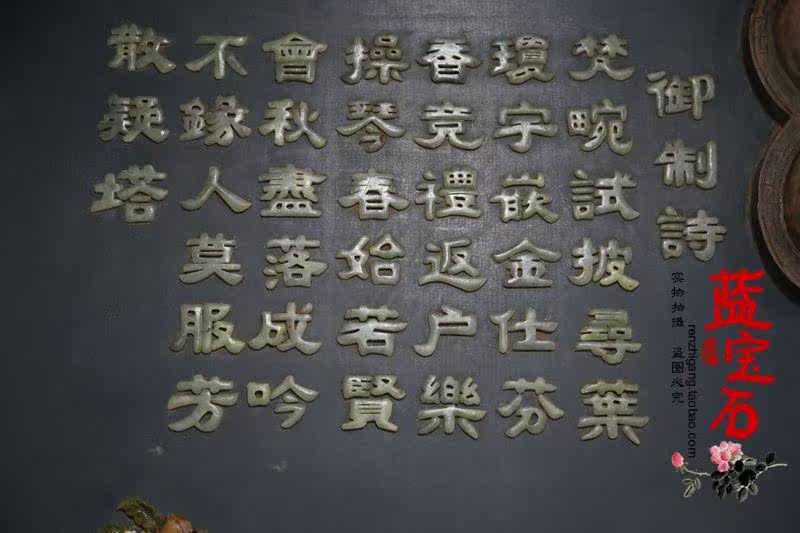 御制詩
梵畹試披尋葉
環宇嵌金仕芬
香竞禮返户樂
操琴春始若賢
會秋盡落成吟
不緣人莫服芳
散疑塔
蓝宝石
实物拍摄 盗图必究
renzhigang.taobao.com